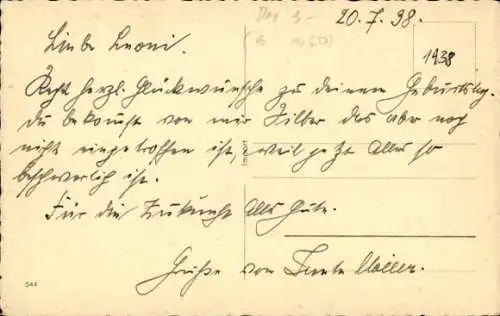 20.7.98.
1938
Liebe Leoni.
Recht herzl. Glückwünsche zu deinem Geburtstag.
du bekomst von mir Silber das aber noch
nicht eingetroffen ist, weil jetzt alles so
beschwerlich ist.
Für die Zukunft alles Gute.
Grüße von Tante
Import
544